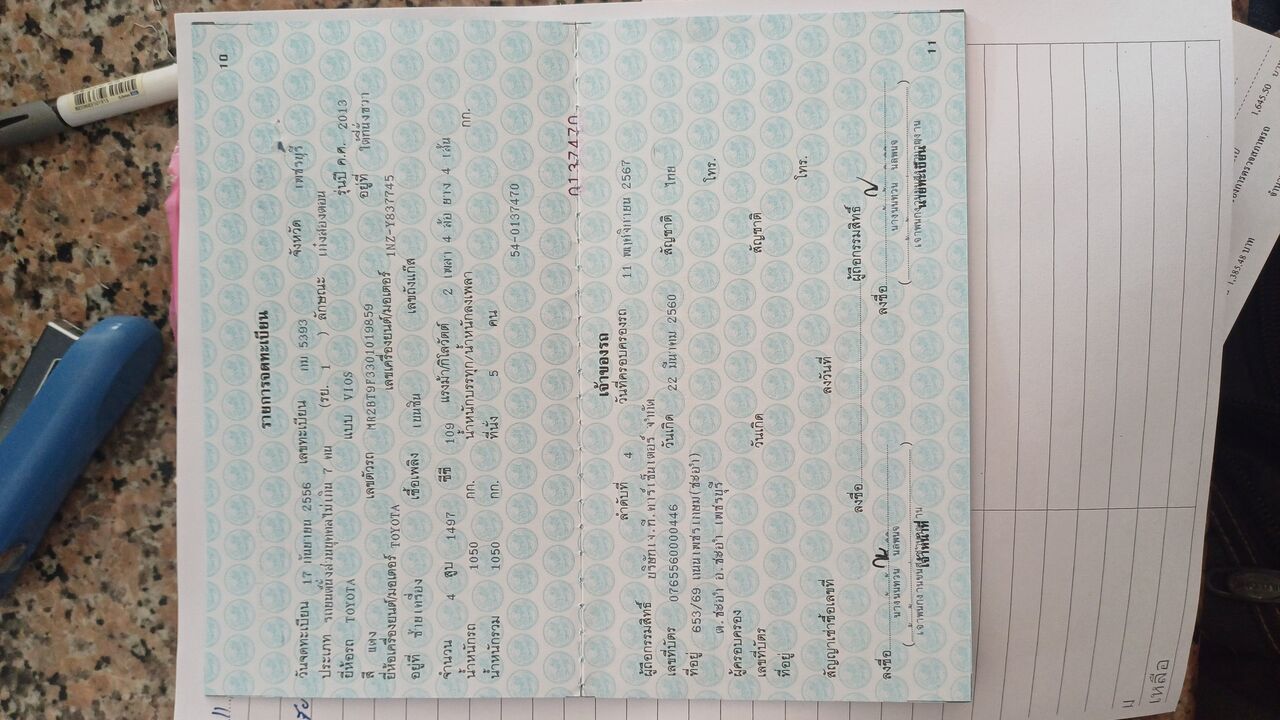 10
รายการจดทะเบียน
วันจดทะเบียน 17 กันยายน 2556 เลขทะเบียน กม 5393 จังหวัด เพชรบุรี
ประเภท รถยนต์นั่งส่วนบุคคลไม่เกิน 7 คน (รย. 1 ) ลักษณะ เก๋งสองตอน
ยี่ห้อรถ TOYOTA แบบ VIOS รุ่นปี ค.ศ. 2013
สี แดง เลขตัวรถ MR2BT9F3301019859 อยู่ที่ ใต้ที่นั่งขวา
ยี่ห้อเครื่องยนต์/มอเตอร์ TOYOTA เลขเครื่องยนต์/มอเตอร์ 1NZ-Y837745
อยู่ที่ ซ้ายเครื่อง เชื้อเพลิง เบนซิน เลขถังแก๊ส
จำนวน 4 สูบ 1497 ซีซี 109 แรงม้า/กิโลวัตต์ 2 เพลา 4 ล้อ ยาง 4 เส้น
น้ำหนักรถ 1050 กก. น้ำหนักบรรทุก/น้ำหนักลงเพลา กก.
น้ำหนักรวม 1050 กก. ที่นั่ง 5 คน
54-0137470
0137470
เจ้าของรถ
ลำดับที่ 4 วันที่ครอบครองรถ 11 พฤศจิกายน 2567
ผู้ถือกรรมสิทธิ์ บริษัทเจ.ที.คาร์เซ็นเตอร์ จำกัด
เลขที่บัตร 0765560000446 วันเกิด 22 มีนาคม 2560 สัญชาติ ไทย
ที่อยู่ 653/69 ถนนเพชรเกษม(ชะอำ) โทร.
ต.ชะอำ อ.ชะอำ เพชรบุรี
ผู้ครอบครอง
เลขที่บัตร วันเกิด สัญชาติ
ที่อยู่ โทร.
สัญญาเช่าซื้อเลขที่ ลงวันที่
ลงชื่อ ผู้ถือกรรมสิทธิ์
ลงชื่อ ลงชื่อ
เจ้าหน้าที่ นายทะเบียน
11
1,645.50 บาท
1,385.48 บาท
เหลือ